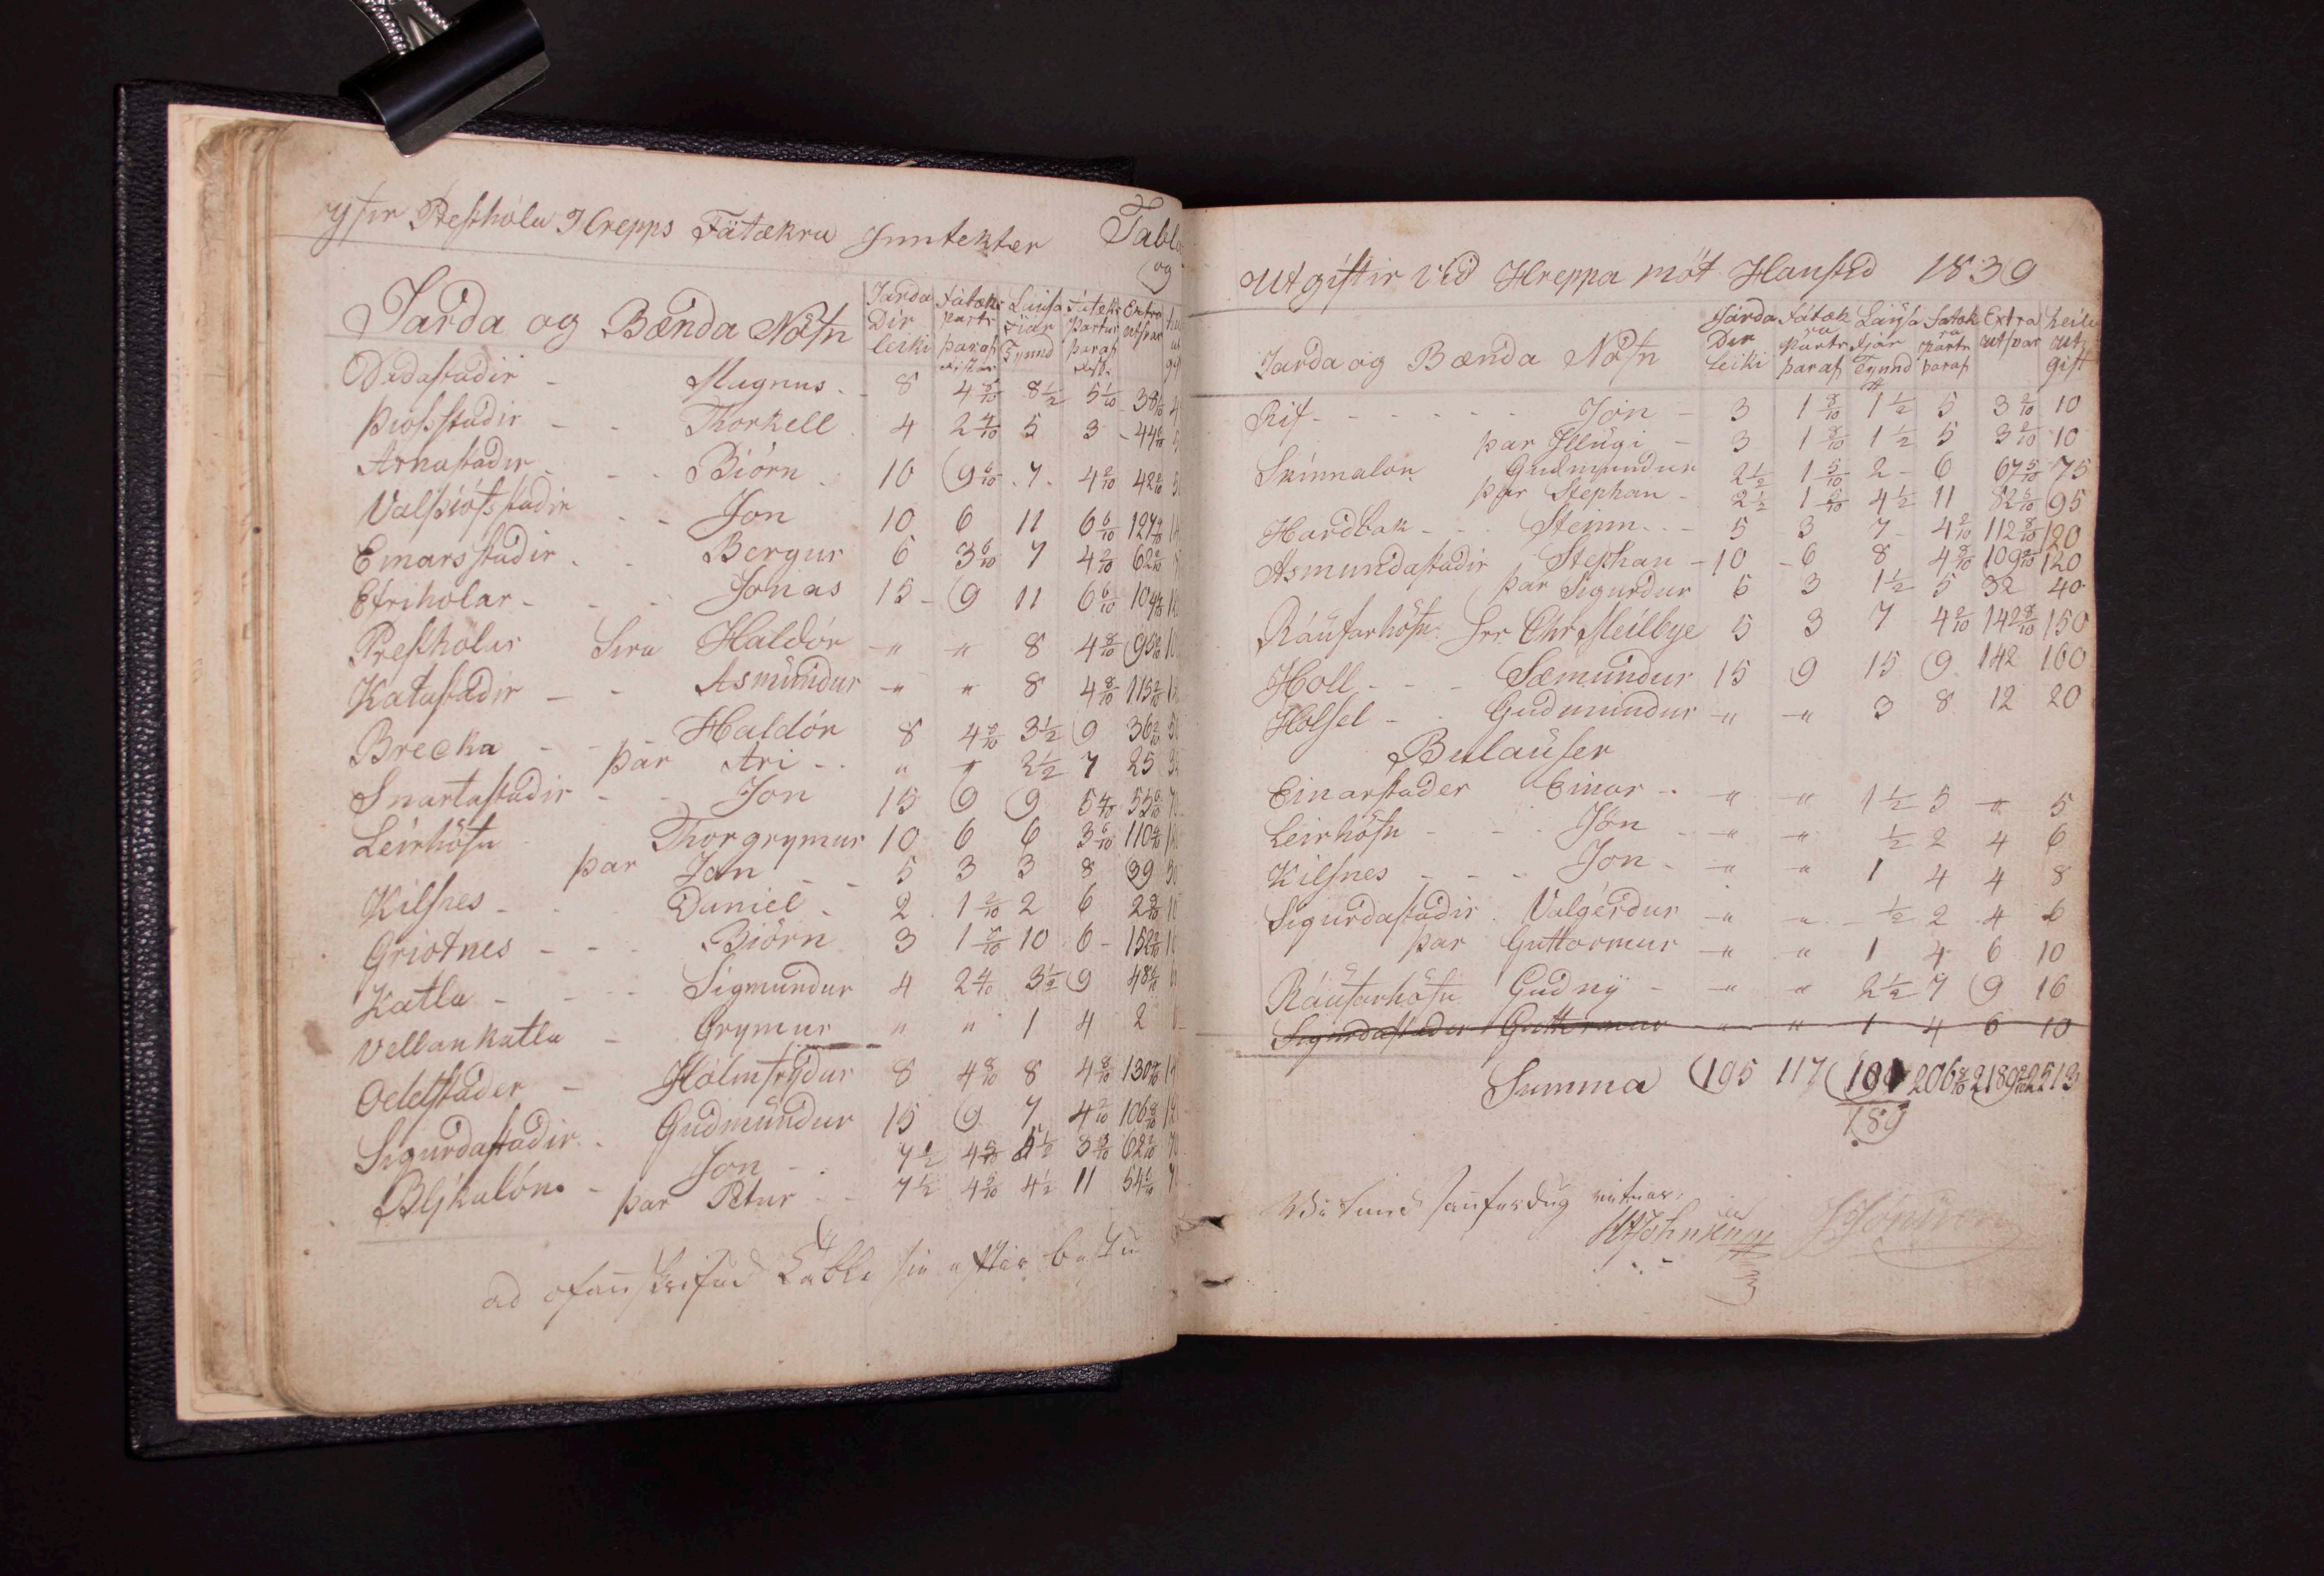 yfir Presthóla Hrepps Fátækra Inntekter Tabla
og
Jarda og Bænda Nöfn Jarda Dír leiki Fátæk. parts þaraf Lausa Fiár Tyund Fátæk. Partur þaraf Extra utsvar
Dadastadir - Magnus - 8 4 8/10 8 1/2 5 1/10 38 1/10
Þiofsstadir - - Thorkell 4 2 4/10 5 3 - 44 6/10
Arnastadir - - Biórn 10 9 6/10 7 4 2/10 42 2/10
Valþiófsstadir - - Jon 10 6 11 6 6/10 127 4/10
Einarsstadir - - Bergur 6 3 6/10 7 4 2/10 62 2/10
Efriholar - - - Jonas 15 - 9 11 6 6/10 104 4/10
Presthólar Sira Haldór " " 8 4 8/10 95 2/10
Katastadir - - Asmundur " " 8 4 8/10 115 2/10
Brecka - - Haldór 8 4 8/10 3 1/2 9 36 2/10
þar Ari - . " " 2 1/2 7 25
Snartastadir - - Jon 15 9 9 5 4/10 55 6/10
Leirhöfn Thorgrymur 10 6 6 3 6/10 110 4/10
þar Jon - - 5 3 3 8 39
Kilsnes - - Daniel - 2 1 2/10 2 6 2 8/10
Griotnes - - - Biörn 3 1 8/10 10 6 - 152 2/10
Katla - - - Sigmundur 4 2 4/10 3 1/2 9 48 6/10
Vellankatla - Grymur " " 1 4 2
Oddstader - Hólmfrÿdur 8 4 8/10 8 4 8/10 130 4/10
Sigurdastadir - Gudmundur 15 9 7 4 2/10 106 8/10
Blykalón - Jon - . 7 1/2 4 5/10 5 1/2 3 3/10 62 2/10
þar Petur - - 7 1/2 4 5/10 4 1/2 11 54 4/10
ad ofannskrifud Tabla sie eftir bestu
Utgiftir vid Hreppa mót Haustid 1839
Jarda og Bænda Nöfn Jarda Dir leiki Fátæk ra Parts þaraf Lausa fiár Tyund Fatæk ra parts þaraf Extra utsvar heile ut gift
Rif - - - - - - Jón - 3 1 8/10 1 1/2 5 3 2/10 10
þar Illugi - 3 1 8/10 1 1/2 5 3 2/10 10
Skinnalon Gudmundur 2 1/2 1 5/10 2 - 6 67 5/10 75
þar Stephan - 2 1/2 1 5/10 4 1/2 11 82 5/10 95
Hardbak - - - Steinn - - 5 3 7 - 4 2/10 112 8/10 120
Asmundastadir Stephan - 10 - 6 8 4 8/10 109 2/10 120
þar Sigurdur 5 3 1 1/2 5 32 40
Ráufarhöfn Hrr Chr Meilbye 5 3 7 4 2/10 142 8/10 150
Holl - - - Sæmundur 15 9 15 9 142 160
Holsel - - Gudmundur - " - " 3 8 12 20
Bulauser
Einarstader Einar - - " " 1 1/2 5 " 5
Leirhöfn - - Jón - " - " 1/2 2 4 6
Kilsnes - - - Jon - - " " 1 4 4 8
Sigurdastadir - Valgérdur - " " 1/2 2 4 6
þar Guttormur - " " 1 4 6 10
Ráufarhöfn Gudnÿ - " " 2 1/2 7 9 16
Sigurdastader Guttormur " " 1 4 6 10
Summa 195 117 206 8/10 2189 2513
189
vitnar